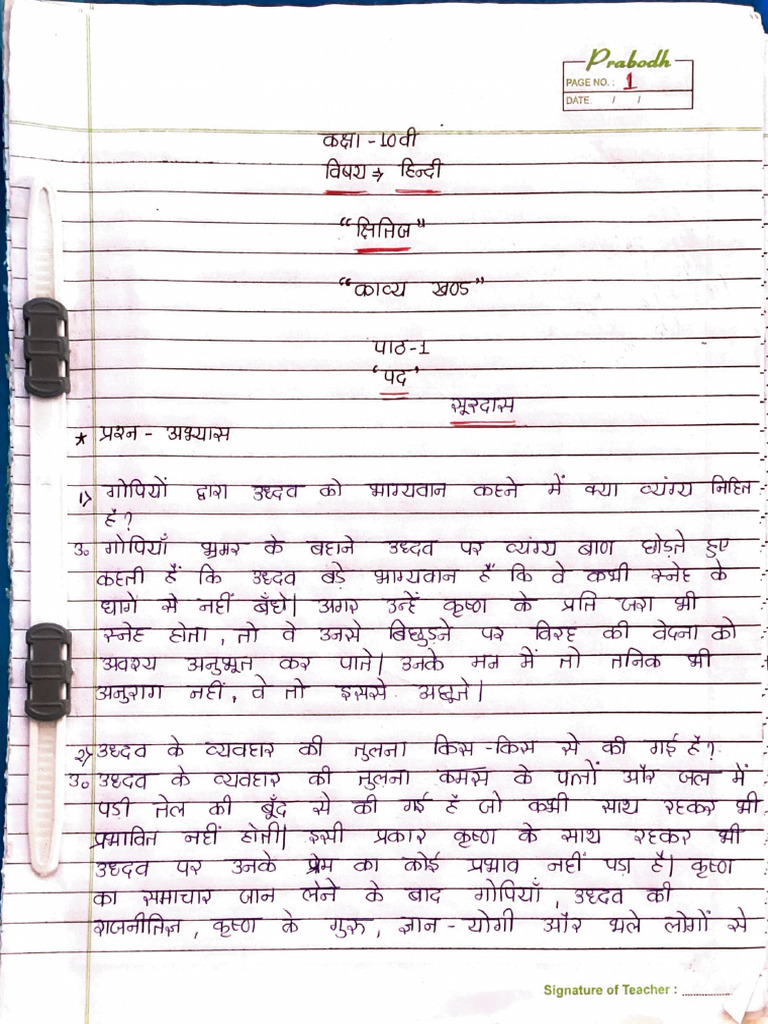 Prabodh
PAGE NO. : 1
DATE: / /
कक्षा -10वी
विषय ⇒ हिन्दी
“क्षितिज”
“काव्य खण्ड”
पाठ-1
‘पद’
सूरदास
* प्रश्न - अभ्यास
1) गोपियों द्वारा उध्दव को भाग्यवान कहने में क्या व्यंग्य निहित
है?
उ० गोपियाँ भ्रमर के बहाने उध्दव पर व्यंग्य बाण छोड़ते हुए
कहती हैं कि उध्दव बड़े भाग्यवान हैं कि वे कभी स्नेह के
धागें से नहीं बँधे। अगर उन्हें कृष्ण के प्रति जरा भी
स्नेह होता, तो वे उनसे बिछुड़ने पर विरह की वेदना को
अवश्य अनुभूत कर पाते। उनके मन में तो तनिक भी
अनुराग नहीं, वे तो इससे अछूते।
2) उध्दव के व्यवहार की तुलना किस-किस से की गई है?
उ० उध्दव के व्यवहार की तुलना कमस के पत्तों और जल में
पड़ी तेल की बूँद से की गई है जो कभी साथ रहकर भी
प्रभावित नहीं होती। इसी प्रकार कृष्ण के साथ रहकर भी
उध्दव पर उनके प्रेम का कोई प्रभाव नहीं पड़ा है। कृष्ण
का समाचार जान लेने के बाद गोपियाँ, उध्दव की
राजनीतिज्ञ, कृष्ण के गुरू, ज्ञान-योगी और भले लोगों से
Signature of Teacher : ............